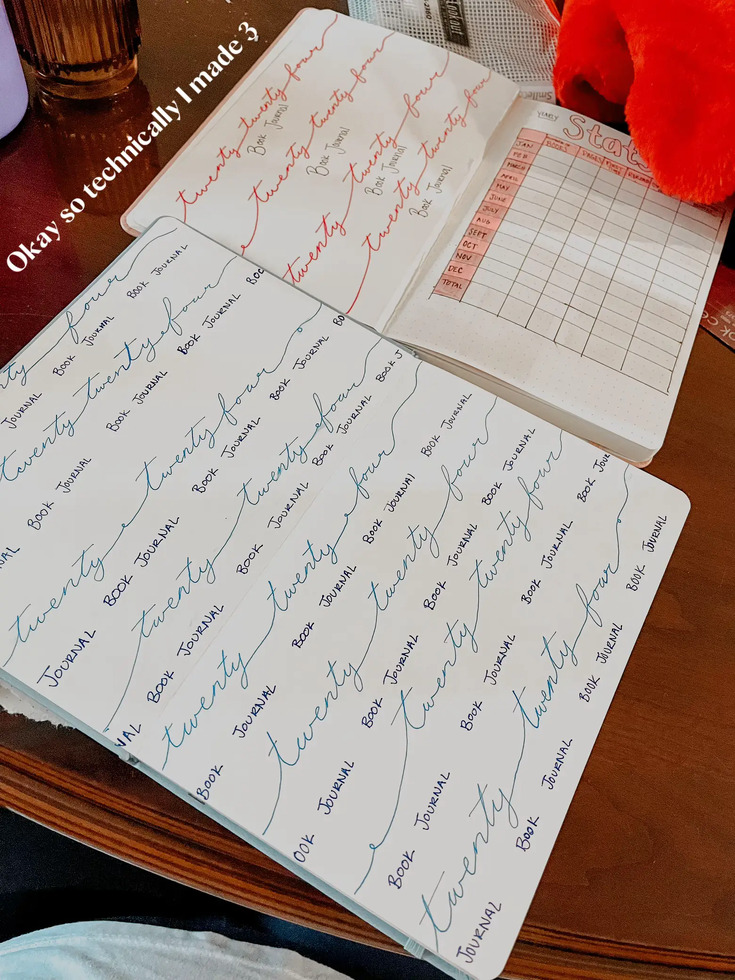 Okay so technically I made 3
twenty twenty four
Book Journal
twenty twenty four
Book Journal
twenty twenty four
Book Journal
twenty twenty four
Book Journal
YEARLY
Stats
PAGES
JAN
FEB
MARCH
APRIL
MAY
JUNE
JULY
AUG
SEPT
OCT
NOV
DEC
TOTAL
four
JOURNAL BOOK JOURNAL BOOK JOURNAL
twenty twenty four
BOOK JOURNAL BOOK JOURNAL BOOK JOURNAL
twenty twenty four
JOURNAL BOOK JOURNAL BOOK JOURNAL BOOK JOURNAL
twenty twenty four
BOOK JOURNAL BOOK JOURNAL BOOK JOURNAL
twenty twenty four
BOOK JOURNAL BOOK JOURNAL BOOK JOURNAL BOOK JOURNAL
twenty twenty four
JOURNAL BOOK JOURNAL BOOK JOURNAL BOOK JOURNAL
twenty twenty four
BOOK JOURNAL BOOK JOURNAL BOOK JOURNAL
twenty twenty four
JOURNAL BOOK JOURNAL BOOK JOURNAL BOOK JOURNAL